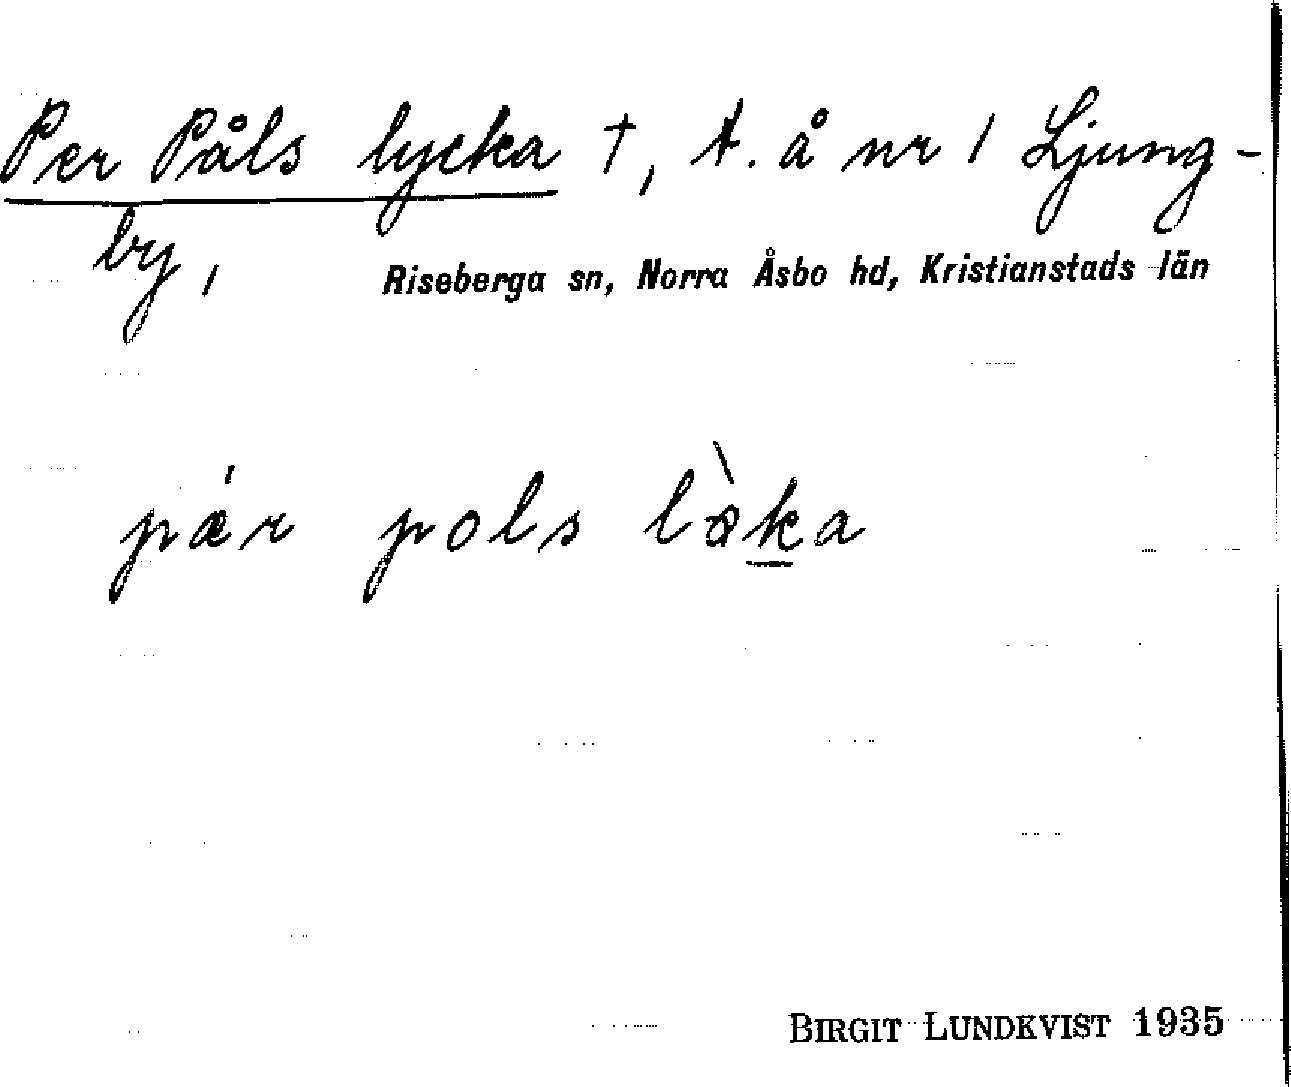 Per Påls lycka †, t. å nr 1 Ljung-
by,
Riseberga sn, Norra Åsbo hd, Kristianstads län
pǽr pols lø̀ka
BIRGIT LUNDKVIST 1935